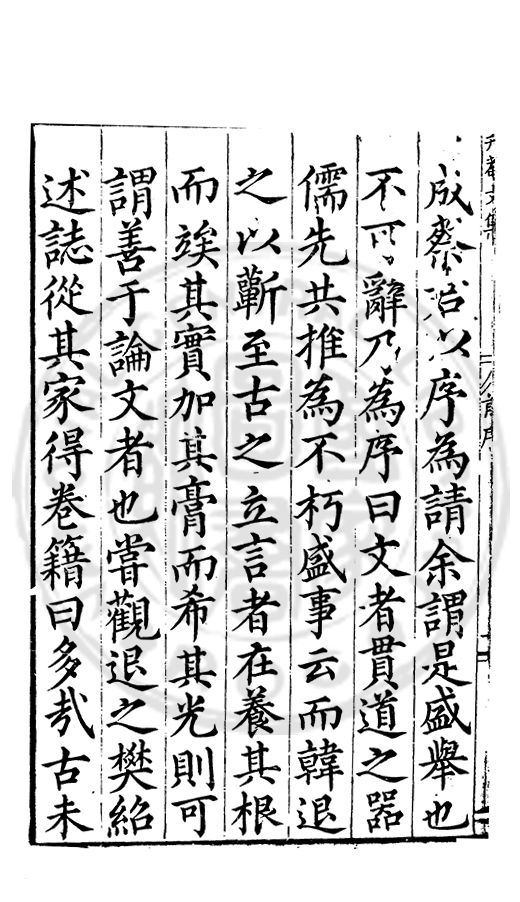 文集
成以序為請余謂是盛舉也
不可辭乃為序曰文者貫道之器
儒先共推為不朽盛事云而韓退
之以蘄至古之立言者在養其根
而竢其實加其膏而希其光則可
謂善于論文者也嘗觀退之樊紹
述誌從其家得卷籍曰多哉古未